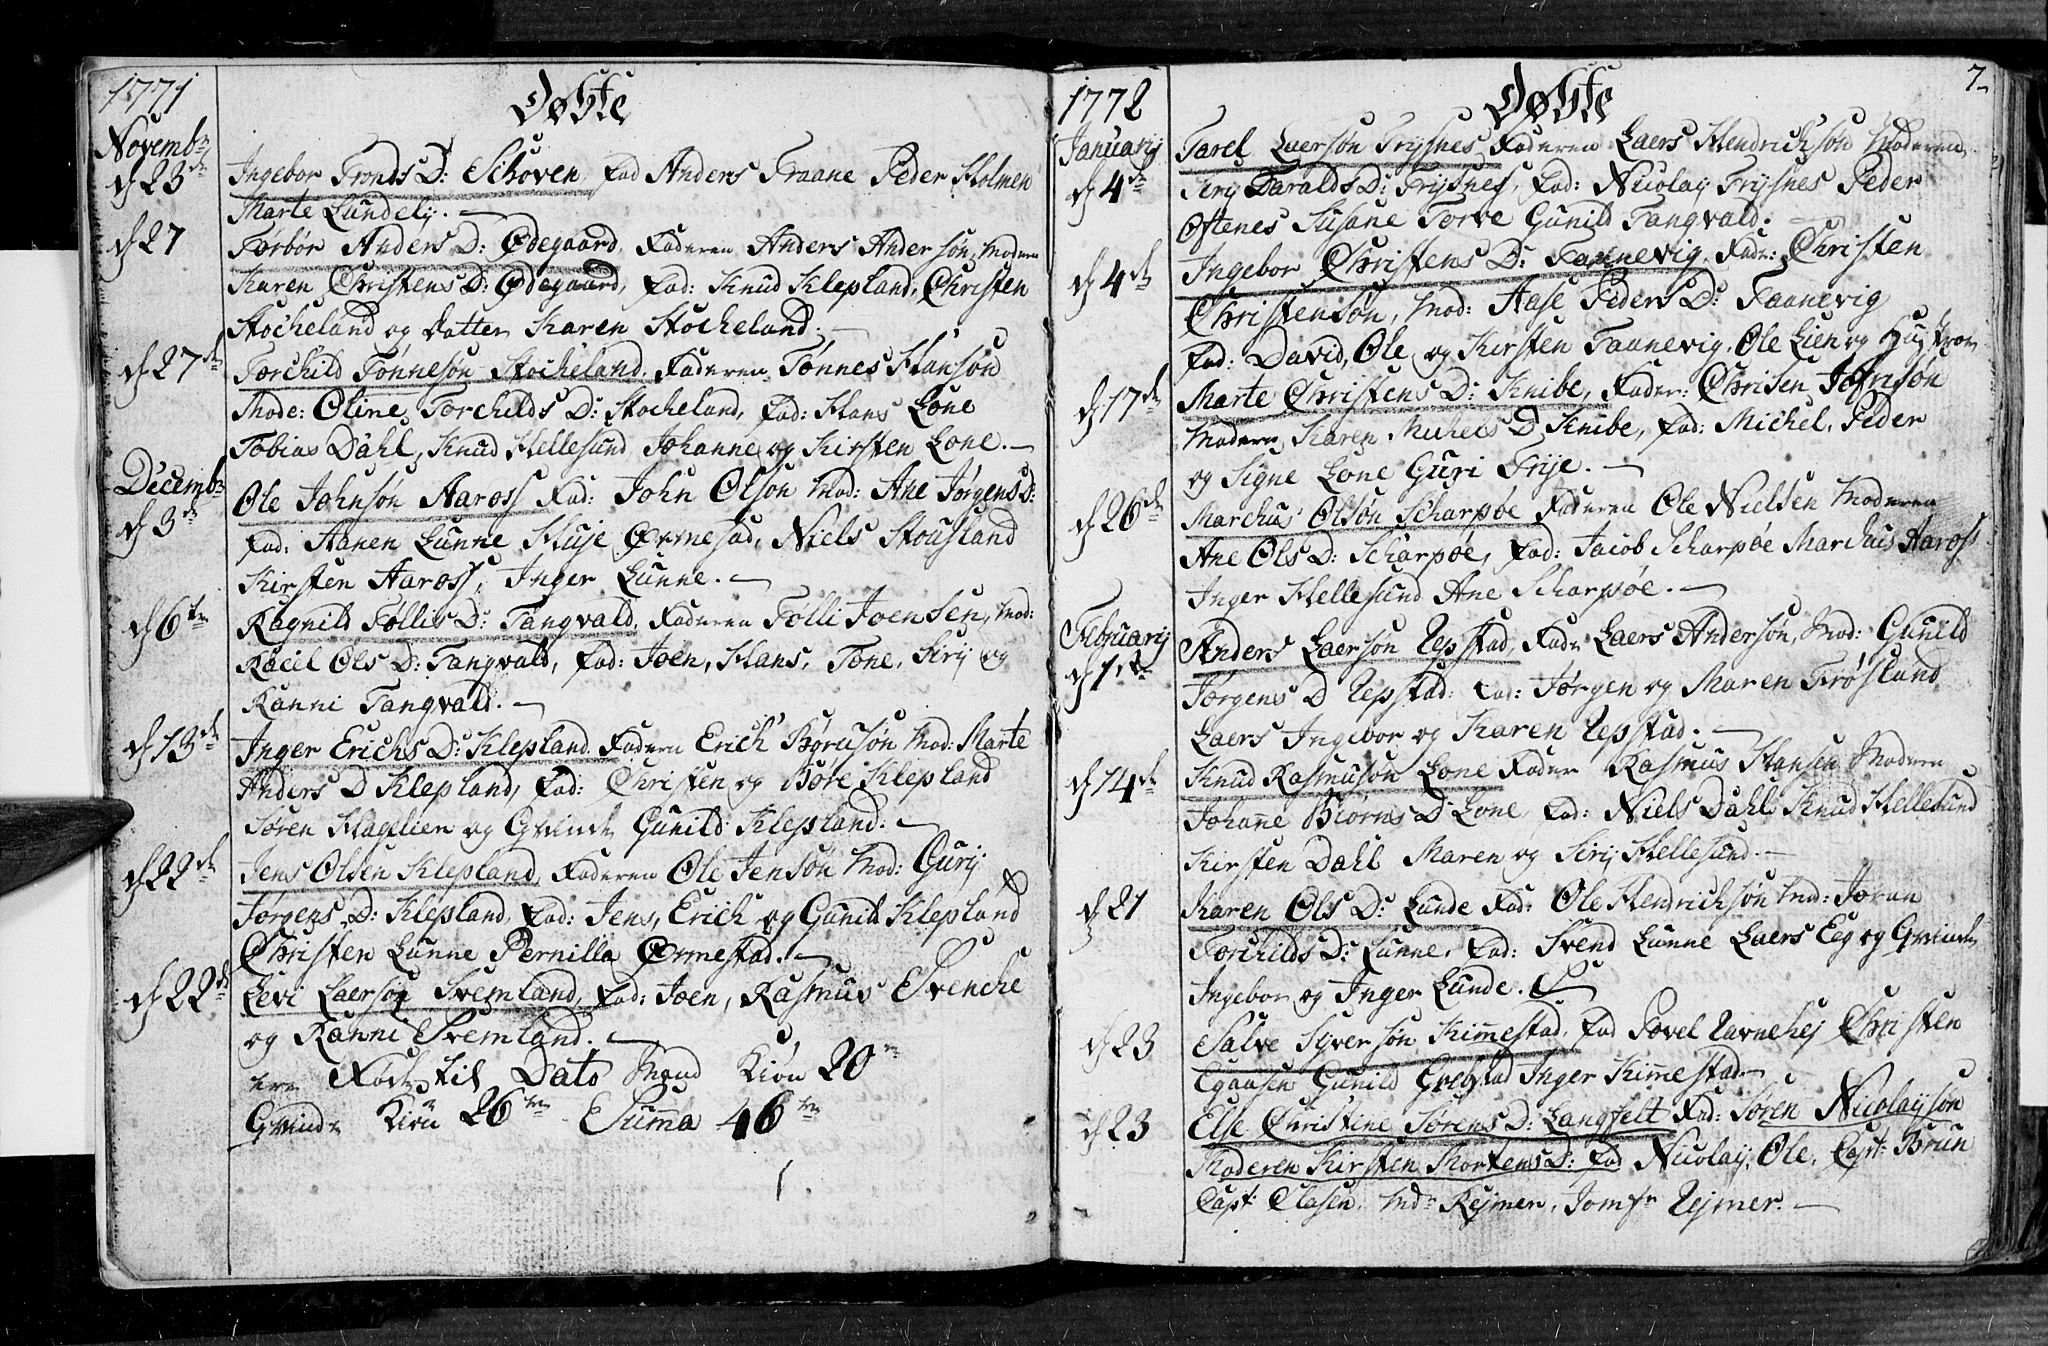 1771
Døbte
Novembr
d 23de Ingebor Tronds D: Schoven, fad Anders Traane Peder Holmen
Marte Lundely.
d 27 Torbør Anders D: Ødegaard, Faderen Anders Andersøn, Moderen
Karen Christens D: Ødegaard, fad: Knud Klepland, Christen
Stocheland og datter Karen Stocheland.
d 27de Torchild Tønnesøn Stocheland, Faderen Tønnes Hansøn
Mode: Oline Torchilds D: Stocheland, fad: Hans Lone
Tobias Dahl, Knud Hellesund Johanne og Kirsten Lone.
Decembr
d 3de Ole Johnsøn Aaross Fad: John Olson Mod: Ane Jørgens D:
fad: Aanen Lunne Siuje Ørmestad, Niels Stousland
Kirsten Aaross, Inger Lunne.
d 6te Ragnild Føllis D: Tangvald, Faderen Følli Joensen, Mod:
Raeil Ols D: Tangvald, fad: Joen, Hans, Tone, Sirij og
Ranni Tangvald.
d 13de Inger Erichs D: Klepland Fadern Erich Børusøn Mod: Marte
Anders D Klepland, fad: Christen og Børe Klepland
Søren Hagelien og Qvinde Gunild Klepland.
d 22de Jens Olsen Klepland, Faderen Ole Jensøn Mod: Gurij
Jørgens D: Klepland, fad: Jens, Erich og Gunild Klepland
Christen Lunne Pernilla Ørmestad.
d 22de Levi Laersøn Tvemland, fad: Joen, Rasmus Svenche
og Ranni Tvemland.
Fødte til Dato Mand Kiøn 20
Qvinde Kiøn 26 Summa 46
1772
Døbte
7
Januarij
d 4de Tarel Laersøn Trysnes, Faderen Laers Hendrichsøn Moderen
Sirij Taralds D: Trysnes, fad: Nicolaij Trysnes Peder
Oftenes Susane Torve Gunild Tangvald.
d 4de Ingebor Christens D: Faanevig, Fadr: Christen
Christensøn, Mod: Aase Peders D: Faanevig
fad: David, Ole og Kirsten Faanevig, Ole Lien og Hustroe
d 17de Marte Christens D: Knibe, Fader: Chrisen
Modern Karen Michels D Knibe, fad: Michel, Peder
og Signe Lone Guri Frije.
d 26de Marchus Olsøn Scharpøe Faderen Ole Nielsen Moderen
Ane Ols D: Scharpøe, fad: Jacob Scharpøe Marchus Aaross
Inger Hellesund Ane Scharpøe.
Februarij
d 1ste Anders Laersøn Repstad, Fadr Laers Andersøn, Mod: Gunild
Jørgens D Repstad: fad: Jørgen og Maren Frøsland
Laers Ingebor og Karen Repstad.
d 14de Knud Rasmusøn Lone Fader Rasmus Hansen Modern
Johanne Biørns D Lone, fad: Niels Dahl Knud Hellesund
Kirsten Dahl Maren og Sirij Hellesund.
d 21 Karen Ols D: Lunde Fad: Ole Hendrichsøn Mod: Joran
Torchilds D: Lunne, fad: Svend Lunne Laers Eeg og Qvinde
Ingebor og Inger Lunde.
d 23 Salve Syversøn Kimestad, fad Povel Ravnehej Christen
Egaasen Gunild Grebstad Inger Kimestad.
d 23 Else Christine Sørens D: Langfelt Fad: Søren Nicolaijsøn
Moderen Kirsten Mortens D: fad Nicolaij, Ole, Capt: Brun
Capt: Clasen, Md: Rejmer, Jomfr Rejmer.